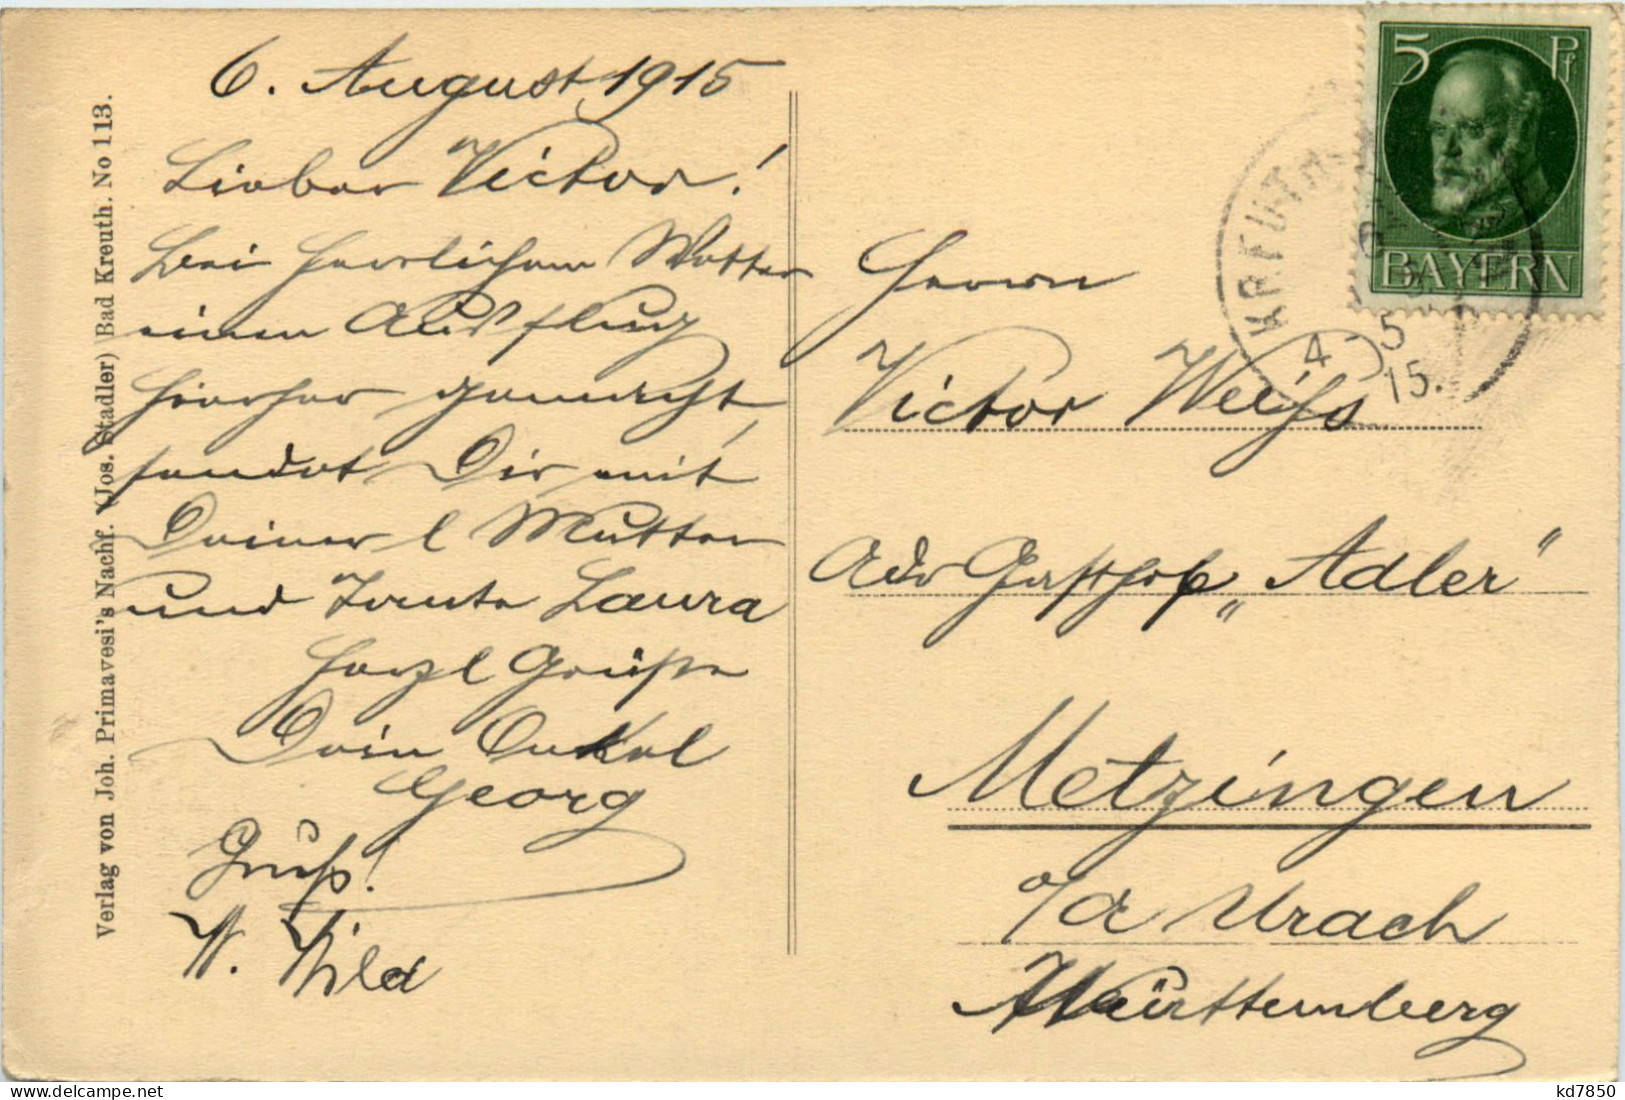 6. August 1915
Lieber Victor!
Bei herrlichem Wetter
einen Ausflug
hierher gemacht,
sendet Dir mit
Deiner l Mutter
und Tante Laura
herzl Grüße
Dein Onkel
Georg
Gruß!
W. Wild
Herrn
Victor Weiss
Adr Gasthof „Adler“
Metzingen
o/a Urach
Württemberg
5 Pf
BAYERN
KREUTH
4-5
15.
Verlag von Joh. Primavesi's Nachf. (Jos. Stadler) Bad Kreuth. No 113.
kd7850